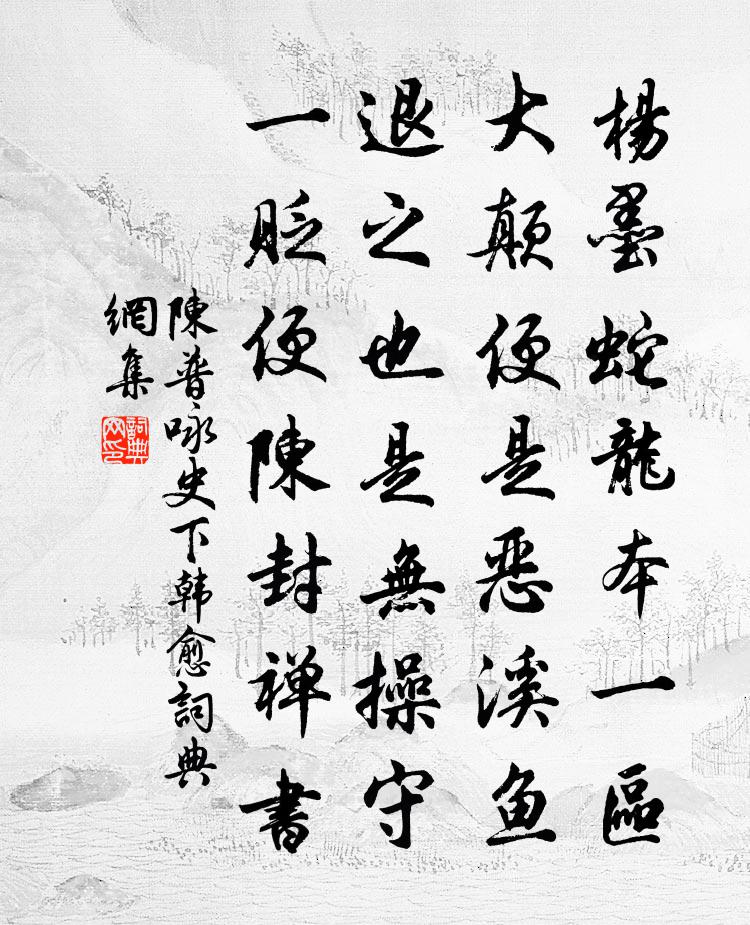 楊墨蛇龍本一區
大顛便是惡溪魚
退之也是無操守
一貶便陳封禅書
陳普咏史下韩愈詞典
網集
詞典
网印